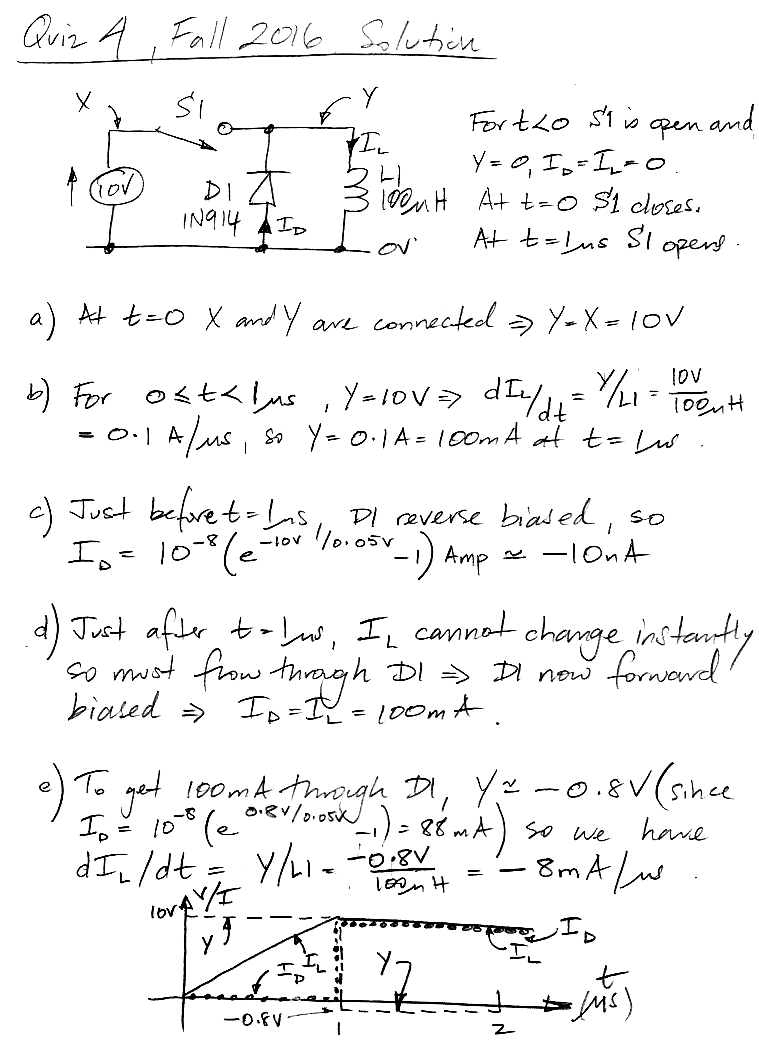 Quiz 4, Fall 2016 Solution
X S1 Y
For t<0 S1 is open and
I_L
Y=0, I_D=I_L=0.
10V D1 L1
100μH At t=0 S1 closes.
1N914 I_D
0V At t=1μs S1 opens.
a) At t=0 X and Y are connected ⇒ Y=X=10V
b) For 0≤t<1μs, Y=10V ⇒ dI_L/dt = Y/L1 = 10V/100μH
= 0.1 A/μs, so Y=0.1A=100mA at t=1μs.
c) Just before t=1μs, D1 reverse biased, so
I_D = 10^-8 (e^-10V/0.05V -1) Amp ≃ -10nA
d) Just after t=1μs, I_L cannot change instantly
so must flow through D1 ⇒ D1 now forward
biased ⇒ I_D=I_L=100mA.
e) To get 100mA through D1, Y≃-0.8V (since
I_D = 10^-8 (e^0.8V/0.05V -1) = 88mA) so we have
dI_L/dt = Y/L1 = -0.8V/100μH = -8mA/μs.
V/I
10V
Y I_L I_D
I_D I_L Y
t
(μs)
-0.8V
1 2